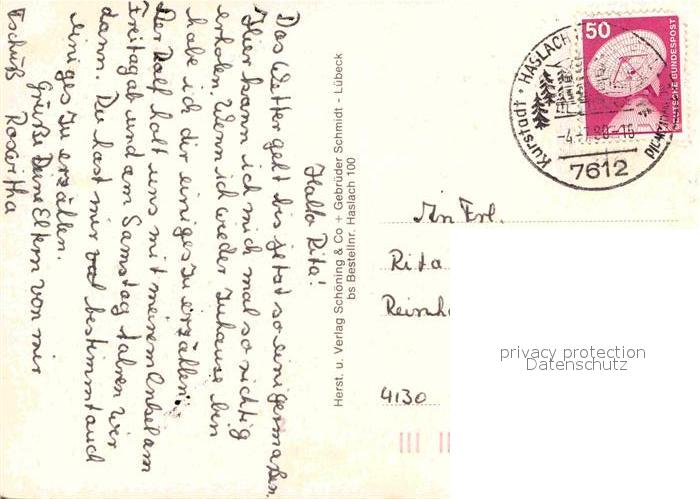 Hallo Rita!
Das Wetter geht bis jetzt so einigermaßen.
Hier kann ich mich mal so richtig
erholen. Wenn ich wieder zuhause bin
habe ich dir einiges zu erzählen.
Der Ralf holt uns mit meinem Enkel am
Freitagab und am Samstag fahren wir
dann. Du hast mir bestimmt auch
einiges zu erzählen.
Grüße Deine Eltern von mir
Tschüß Roswitha
Herst. u. Verlag Schöning & Co + Gebrüder Schmidt - Lübeck
bs Bestellnr. Haslach 100
50
DEUTSCHE BUNDESPOST
Kurstadt · HASLACH
80-16
7612
An Frl.
Rita
4130
privacy protection
Datenschutz